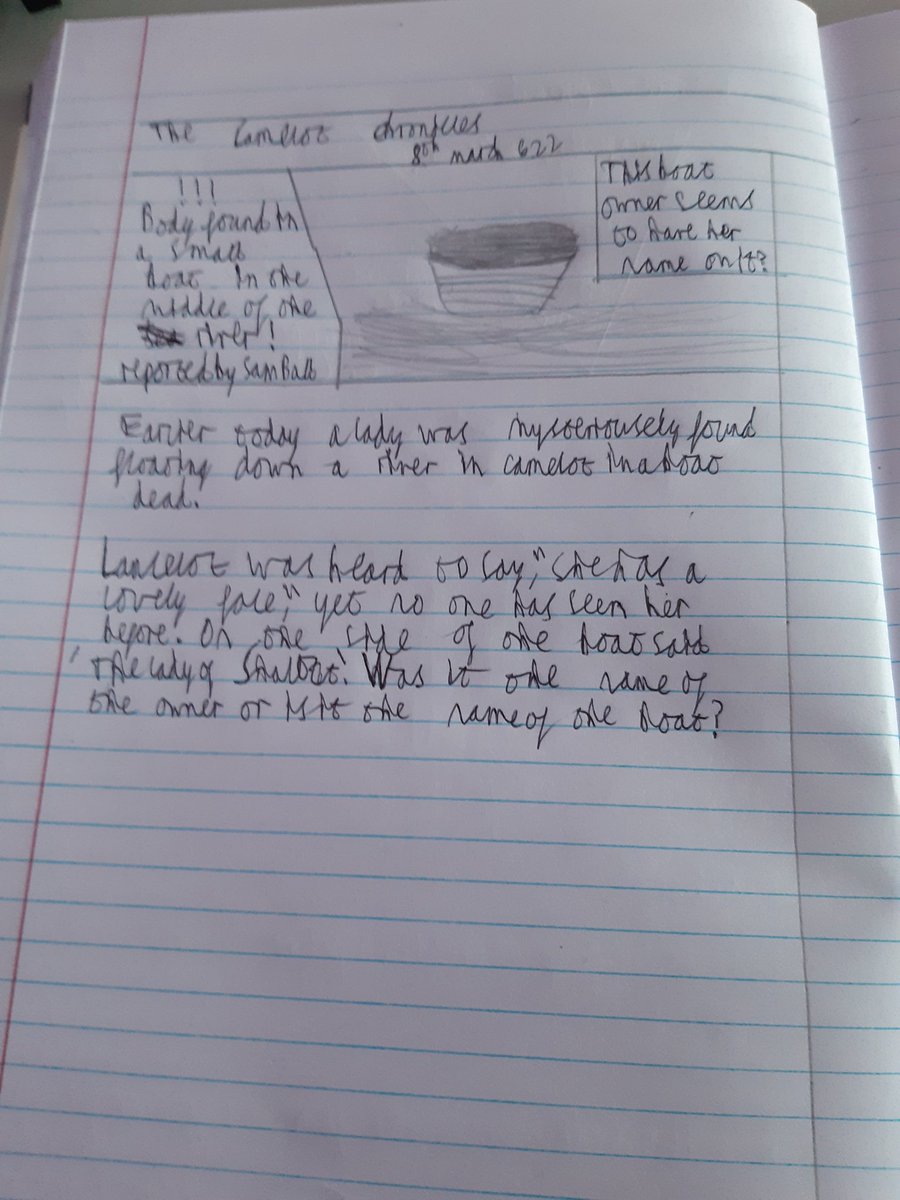 The Camelot chronicles
8th march 622
!!!
Body found in
a small
boat in the
middle of the
river!
reported by Sam Ball
This boat
owner seems
to have her
name on it?
Earlier today a lady was mysteriousely found
floating down a river in camelot in a boat
dead.
Lancelot was heard to say," she has a
lovely face," yet no one has seen her
before. On the side of the boat said
'The lady of Shallott'. Was it the name of
the owner or is it the name of the boat?